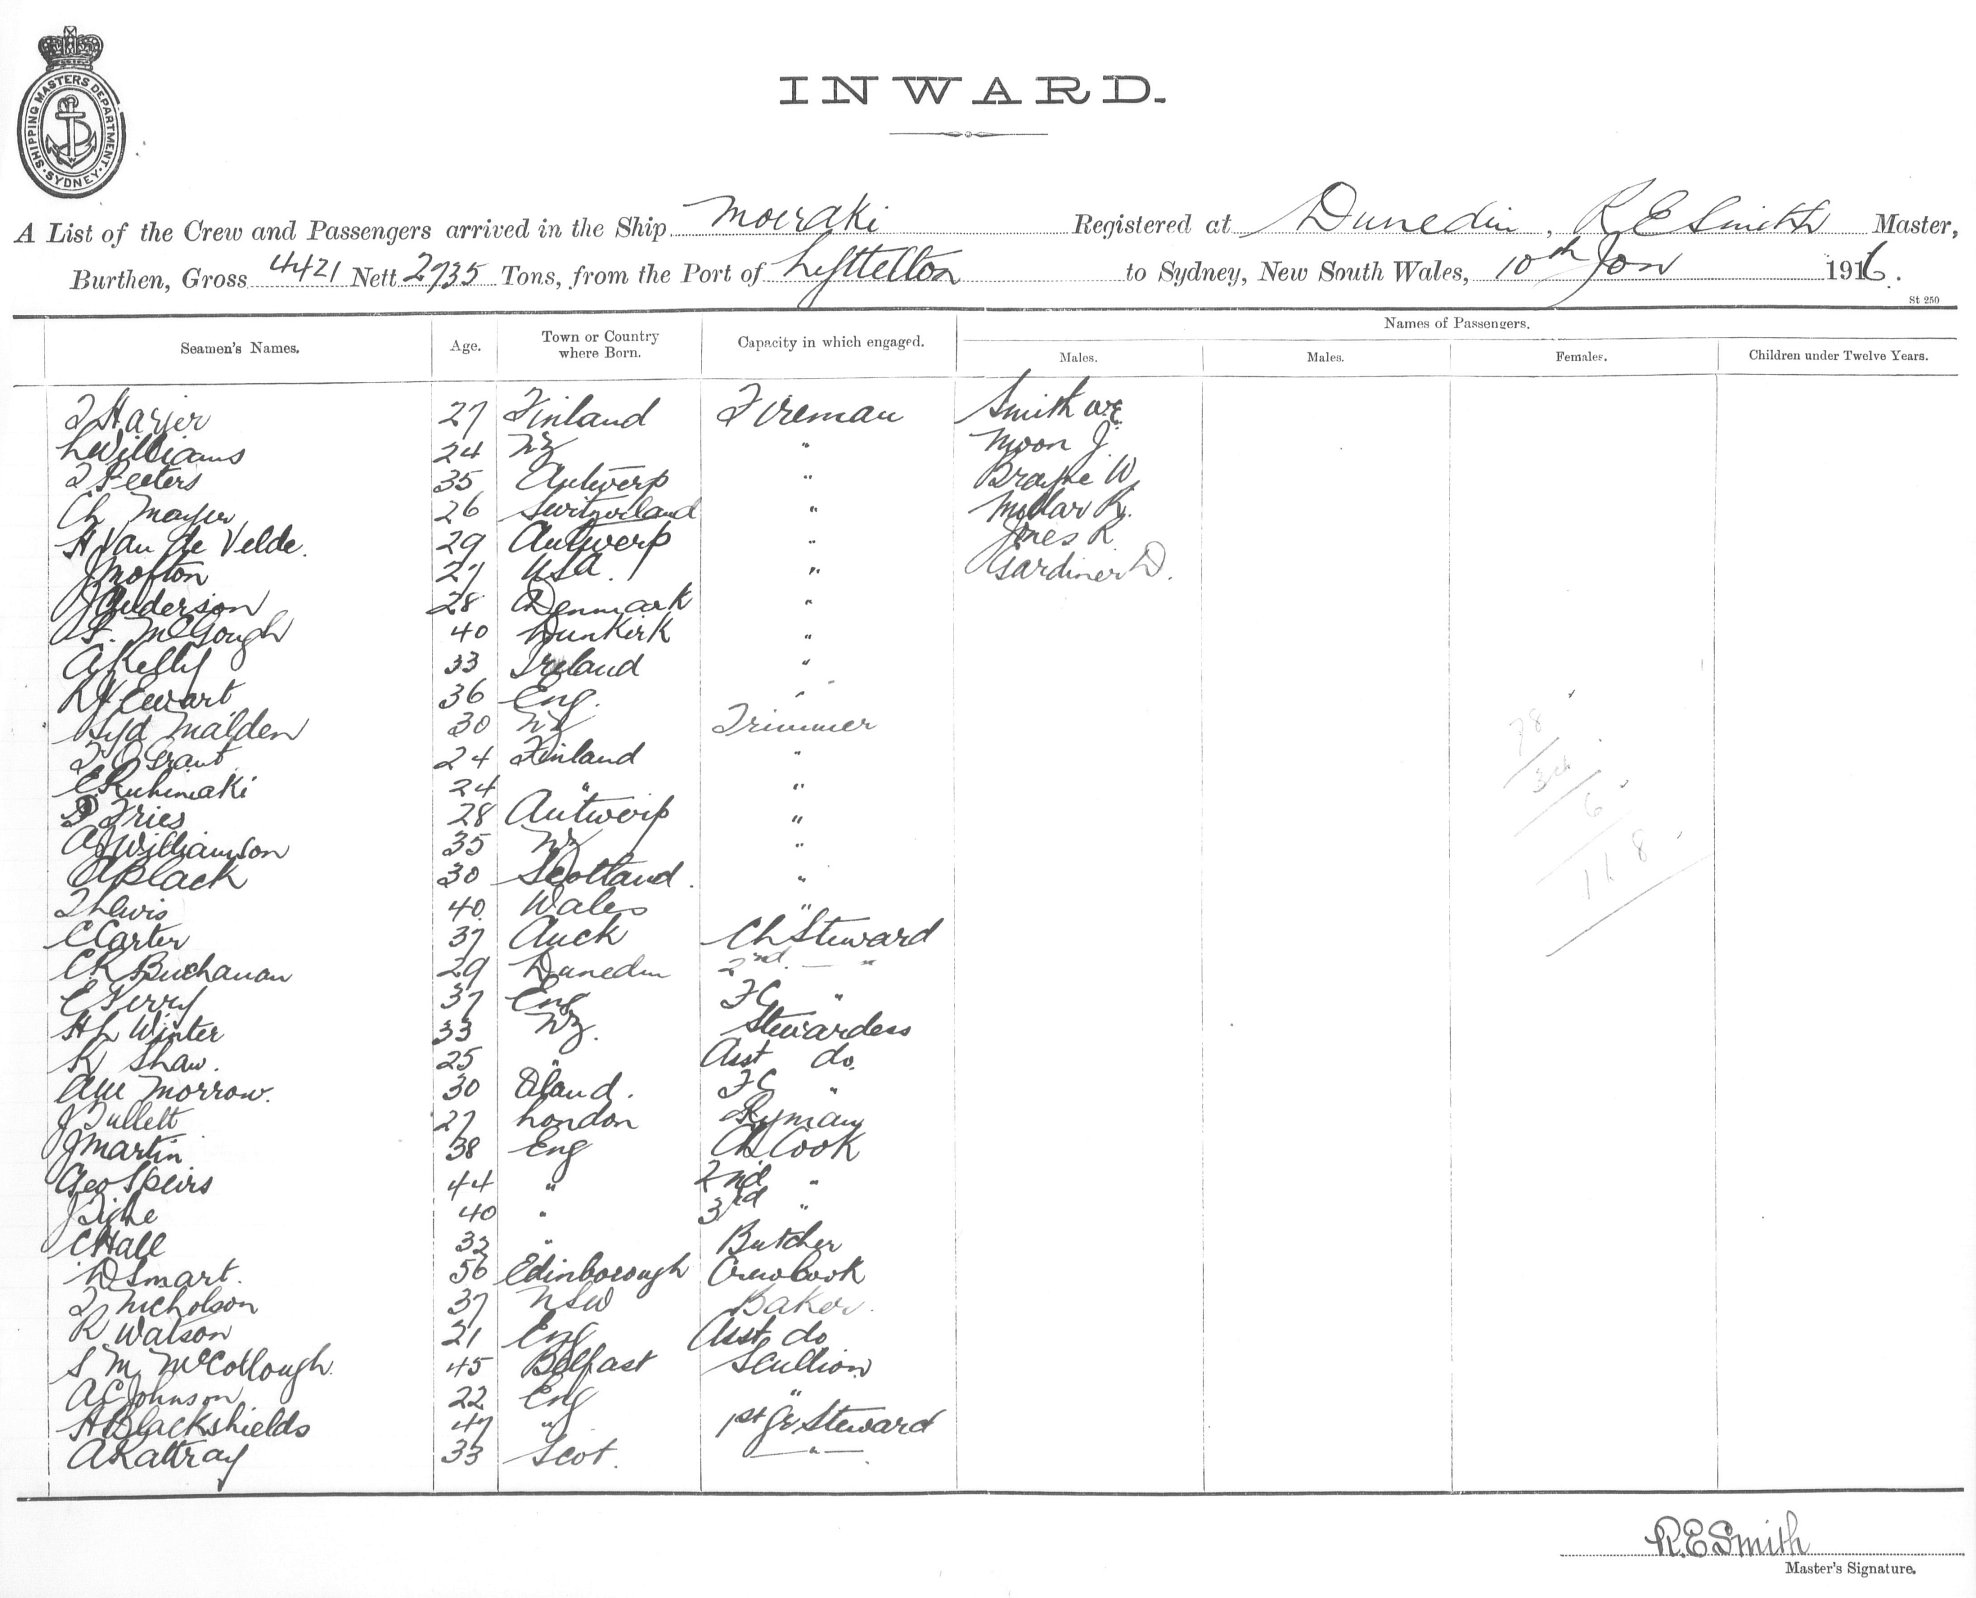 SHIPPING MASTERS DEPARTMENT. SYDNEY.
INWARD.
A List of the Crew and Passengers arrived in the Ship Moeraki Registered at Dunedin, R E Smith Master,
Burthen, Gross 4421 Nett 2735 Tons, from the Port of Lyttelton to Sydney, New South Wales, 10th Jan 1916.
St 250
Seamen's Names. Age. Town or Country where Born. Capacity in which engaged. Names of Passengers.
Males. Males. Females. Children under Twelve Years.
27 Finland Fireman Smith WE
L Williams 24 NZ " Moon J
T Peeters 35 Antwerp " W
Ch Mayer 26 Switzerland " Millar R.
H Van de Velde. 29 Antwerp " Jones R
J Mofton 27 USA. " Gardiner D.
J Anderson 28 Denmark "
McGough 40 Dunkirk "
A Kelly 33 Ireland "
R H Ewart 36 Eng. "
Syd Malden 30 NZ Trimmer
Grant 24 Finland "
E Ruhimaki 24 " "
Fries 28 Antwerp "
A J Williamson 35 NZ "
A Black 30 Scotland. "
T Lewis 40 Wales "
C Carter 37 Auck Ch Steward
C R Buchanan 29 Dunedin 2nd. — "
C Terry 37 Eng FC "
H L Winter 33 NZ. Stewardess
K Shaw. 25 " Asst do.
AM Morrow. 30 FC "
J Tullett 27 London Pyman
J Martin 38 Eng Ch Cook
Geo Speirs 44 " 2nd "
J Tighe 40 " 3rd "
C Hall 32 " Butcher
D Smart. 56 Edinborough Crew Cook
T Nicholson 37 NSW Baker.
R Watson 21 Eng Asst do
S M McCollough. 45 Belfast Scullion
A C Johnson 22 Eng "
H Blackshields 47 " 1st Gr Steward
A Rattray 33 Scot. — " —
78
3 ch
6
R.E Smith
Master's Signature.